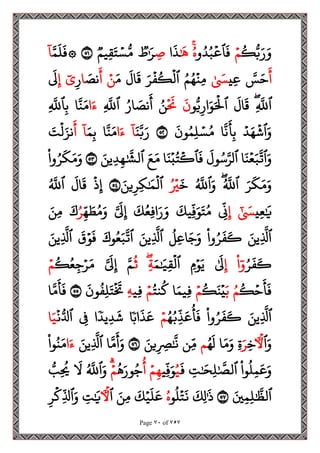 وَرَبُّكُمۡ فَٱعۡبُدُوهُۚ هَٰذَا صِرَٰطٞ مُّسۡتَقِيمٞ ٥١ ۞ فَلَمَّآ
أَحَسَّ عِيسَىٰ مِنۡهُمُ ٱلۡكُفۡرَ قَالَ مَنۡ أَنصَارِيٓ إِلَى
ٱللَّهِۖ قَالَ ٱلۡحَوَارِيُّونَ نَحۡنُ أَنصَارُ ٱللَّهِ ءَامَنَّا بِٱللَّهِ
وَٱشۡهَدۡ بِأَنَّا مُسۡلِمُونَ ٥٢ رَبَّنَآ ءَامَنَّا بِمَآ أَنزَلۡتَ
وَٱتَّبَعۡنَا ٱلرَّسُولَ فَٱكۡتُبۡنَا مَعَ ٱلشَّٰهِدِينَ ٥٣ وَمَكَرُواْ
وَمَكَرَ ٱللَّهُۖ وَٱللَّهُ خَيۡرُ ٱلۡمَٰكِرِينَ ٥٤ إِذۡ قَالَ ٱللَّهُ
يَٰعِيسَىٰٓ إِنِّي مُتَوَفِّيكَ وَرَافِعُكَ إِلَيَّ وَمُطَهِّرُكَ مِنَ
ٱلَّذِينَ كَفَرُواْ وَجَاعِلُ ٱلَّذِينَ ٱتَّبَعُوكَ فَوۡقَ ٱلَّذِينَ
كَفَرُوٓاْ إِلَىٰ يَوۡمِ ٱلۡقِيَٰمَةِۖ ثُمَّ إِلَيَّ مَرۡجِعُكُمۡ
فَأَحۡكُمُ بَيۡنَكُمۡ فِيمَا كُنتُمۡ فِيهِ تَخۡتَلِفُونَ ٥٥ فَأَمَّا
ٱلَّذِينَ كَفَرُواْ فَأُعَذِّبُهُمۡ عَذَابٗا شَدِيدٗا فِي ٱلدُّنۡيَا
وَٱلۡأٓخِرَةِ وَمَا لَهُم مِّن نَّٰصِرِينَ ٥٦ وَأَمَّا ٱلَّذِينَ ءَامَنُواْ
وَعَمِلُواْ ٱلصَّٰلِحَٰتِ فَيُوَفِّيهِمۡ أُجُورَهُمۡۗ وَٱللَّهُ لَا يُحِبُّ
ٱلظَّٰلِمِينَ ٥٧ ذَٰلِكَ نَتۡلُوهُ عَلَيۡكَ مِنَ ٱلۡأٓيَٰتِ وَٱلذِّكۡرِ
Page ٧٠ of ٧٥٧